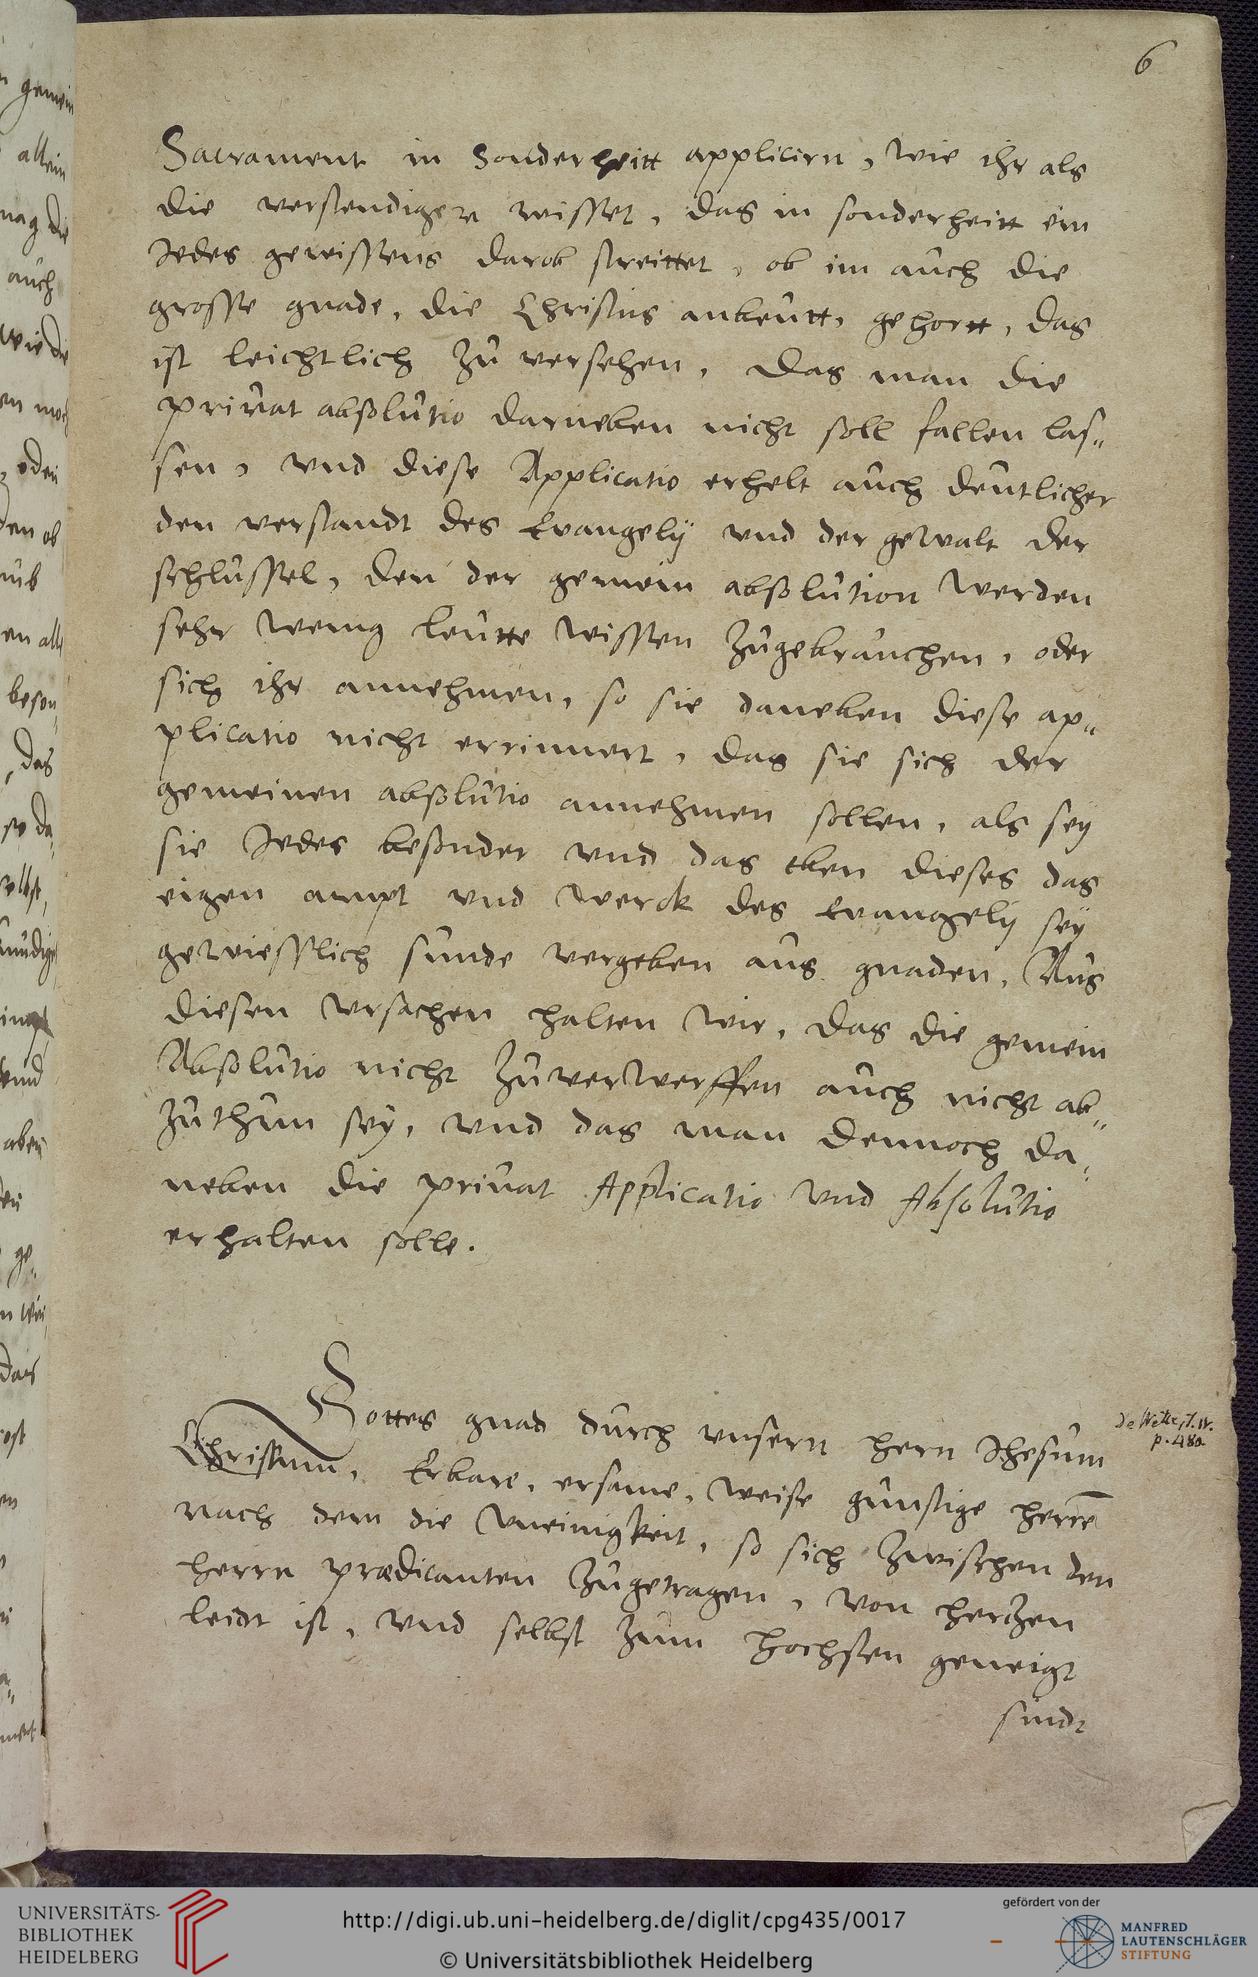 6
Sacrament in Sonderheitt applicirn, wie ihr als
die verstendigern wisset, das in sonderheitt ein
Jedes gewissens darob streittet, ob im auch die
grosse gnade, die Christus anbeutt, gehortt, das
ist leichtlich zu versehen, das man die
priuat absolutio darneben nicht soll fallen las„
sen, vnd diese Applicatio erhelt auch deutlicher
den verstandt des Euangelij vnd der gewalt der
schlussel, den der gemein absolution werden
sehr wenig leutte wissen zugebrauchen, oder
sich ihr annehmen, so sie daneben diese ap„
plicatio nicht errinnert, das sie sich der
gemeinen absolutio annehmen sollen, als sey
sie Jedes besonder vnd das eben dieses das
eigen ampt vnd werck des Euangelij sey
gewiesslich sunde vergeben aus gnaden, Aus
diesen vrsachen halten wir, das die gemein
Absolutio nicht zuuerwerffen auch nicht ab„
zuthun sey, vnd das man dennoch da„
neben die priuat Applicatio vnd Absolutio
erhalten solle.
Gottes gnad durch vnsern hern Jhesum
Christum, Erbare, ersame, weise gunstige herre
nach dem die Vneinigkeit, so sich zwischen den
herrn prædicanten zugetragen, von hertzen
leidt ist, vnd selbst zum hochsten geneigt
sindt
De Wette, T. IV.
p. 480.
UNIVERSITÄTS-
BIBLIOTHEK
HEIDELBERG
http://digi.ub.uni-heidelberg.de/diglit/cpg435/0017
© Universitätsbibliothek Heidelberg
gefördert von der
MANFRED
LAUTENSCHLÄGER
STIFTUNG